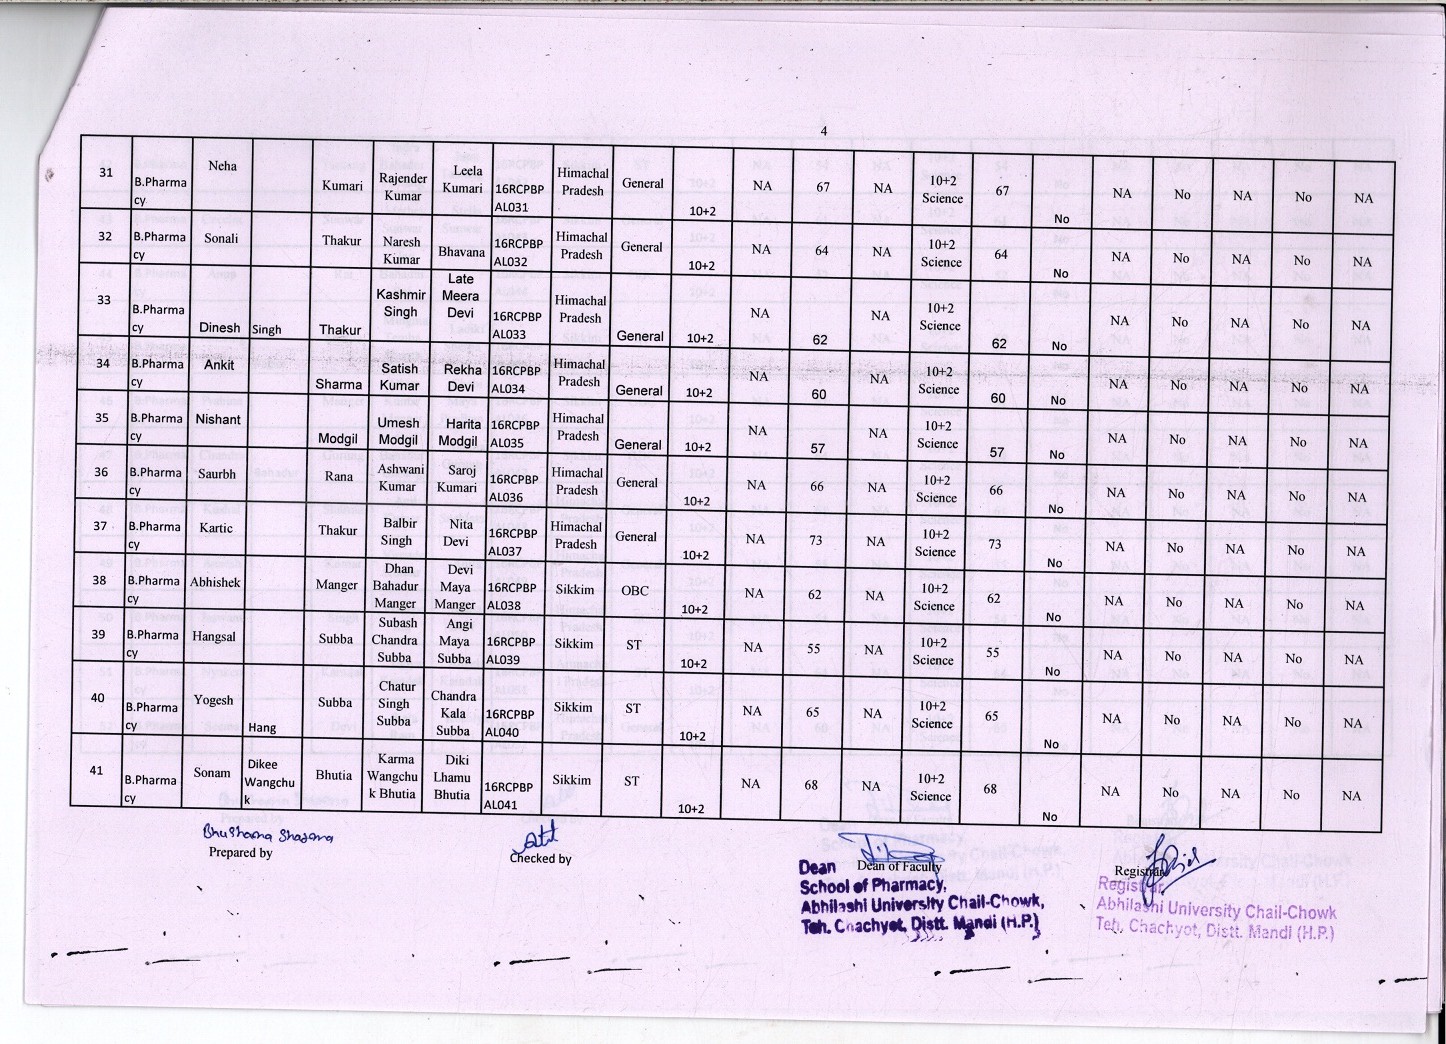 4
31 B.Pharma cy Neha Kumari Rajender Kumar Leela Kumari 16RCPBP AL031 Himachal Pradesh General 10+2 NA 67 NA 10+2 Science 67 No NA No NA No NA
32 B.Pharma cy Sonali Thakur Naresh Kumar Bhavana 16RCPBP AL032 Himachal Pradesh General 10+2 NA 64 NA 10+2 Science 64 No NA No NA No NA
33 B.Pharma cy Dinesh Singh Thakur Kashmir Singh Late Meera Devi 16RCPBP AL033 Himachal Pradesh General 10+2 NA 62 NA 10+2 Science 62 No NA No NA No NA
34 B.Pharma cy Ankit Sharma Satish Kumar Rekha Devi 16RCPBP AL034 Himachal Pradesh General 10+2 NA 60 NA 10+2 Science 60 No NA No NA No NA
35 B.Pharma cy Nishant Modgil Umesh Modgil Harita Modgil 16RCPBP AL035 Himachal Pradesh General 10+2 NA 57 NA 10+2 Science 57 No NA No NA No NA
36 B.Pharma cy Saurbh Rana Ashwani Kumar Saroj Kumari 16RCPBP AL036 Himachal Pradesh General 10+2 NA 66 NA 10+2 Science 66 No NA No NA No NA
37 B.Pharma cy Kartic Thakur Balbir Singh Nita Devi 16RCPBP AL037 Himachal Pradesh General 10+2 NA 73 NA 10+2 Science 73 No NA No NA No NA
38 B.Pharma cy Abhishek Manger Dhan Bahadur Manger Devi Maya Manger 16RCPBP AL038 Sikkim OBC 10+2 NA 62 NA 10+2 Science 62 No NA No NA No NA
39 B.Pharma cy Hangsal Subba Subash Chandra Subba Angi Maya Subba 16RCPBP AL039 Sikkim ST 10+2 NA 55 NA 10+2 Science 55 No NA No NA No NA
40 B.Pharma cy Yogesh Hang Subba Chatur Singh Subba Chandra Kala Subba 16RCPBP AL040 Sikkim ST 10+2 NA 65 NA 10+2 Science 65 No NA No NA No NA
41 B.Pharma cy Sonam Dikee Wangchu k Bhutia Karma Wangchu k Bhutia Diki Lhamu Bhutia 16RCPBP AL041 Sikkim ST 10+2 NA 68 NA 10+2 Science 68 No NA No NA No NA
Bhushana Sharma
Prepared by
Checked by
Dean of Faculty
Registrar
Dean
School of Pharmacy,
Abhilashi University Chail-Chowk,
Teh. Chachyot, Distt. Mandi (H.P.)
Registrar
Abhilashi University Chail-Chowk
Teh. Chachyot, Distt. Mandi (H.P.)